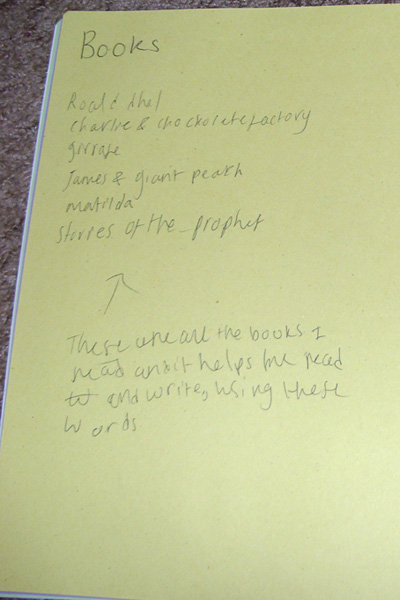 Books
Roald dhel
charlie & chockolate factory
girrafe
James & giant peach
matilda
stories of the prophet
These are all the books I
read and it helps me read
and write, using these
words